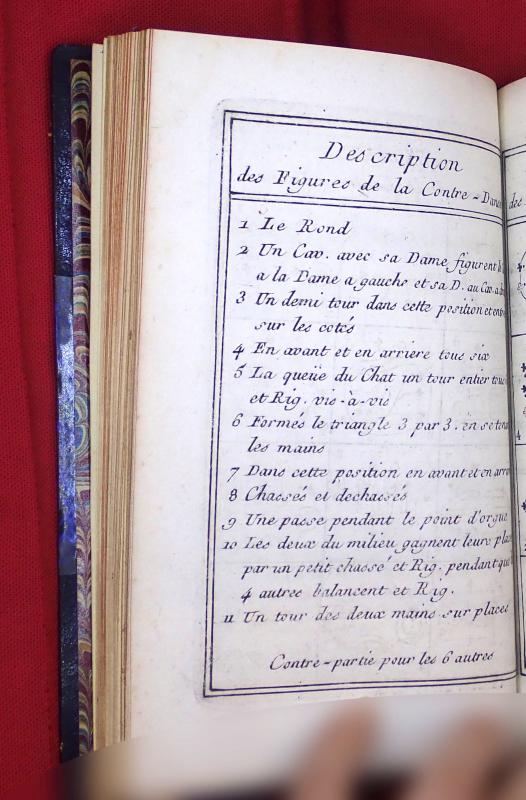 Description
des Figures de la Contre-Danse
1 Le Rond
2 Un Cav. avec sa Dame figurent
a la Dame a gauche et sa D. au Cav. a
3 Un demi tour dans cette position et
sur les cotés
4 En avant et en arriere tous six
5 La queüe du Chat un tour entier
et Rig. vis-à-vis
6 Formés le triangle 3 par 3. en se
les mains
7 Dans cette position en avant et en
8 Chassés et dechassés
9 Une passe pendant le point d'orgue
10 Les deux du milieu gagnent leurs
par un petit chassé et Rig. pendant que
4 autres balancent et Rig.
11 Un tour des deux mains sur places
Contre-partie pour les 6 autres